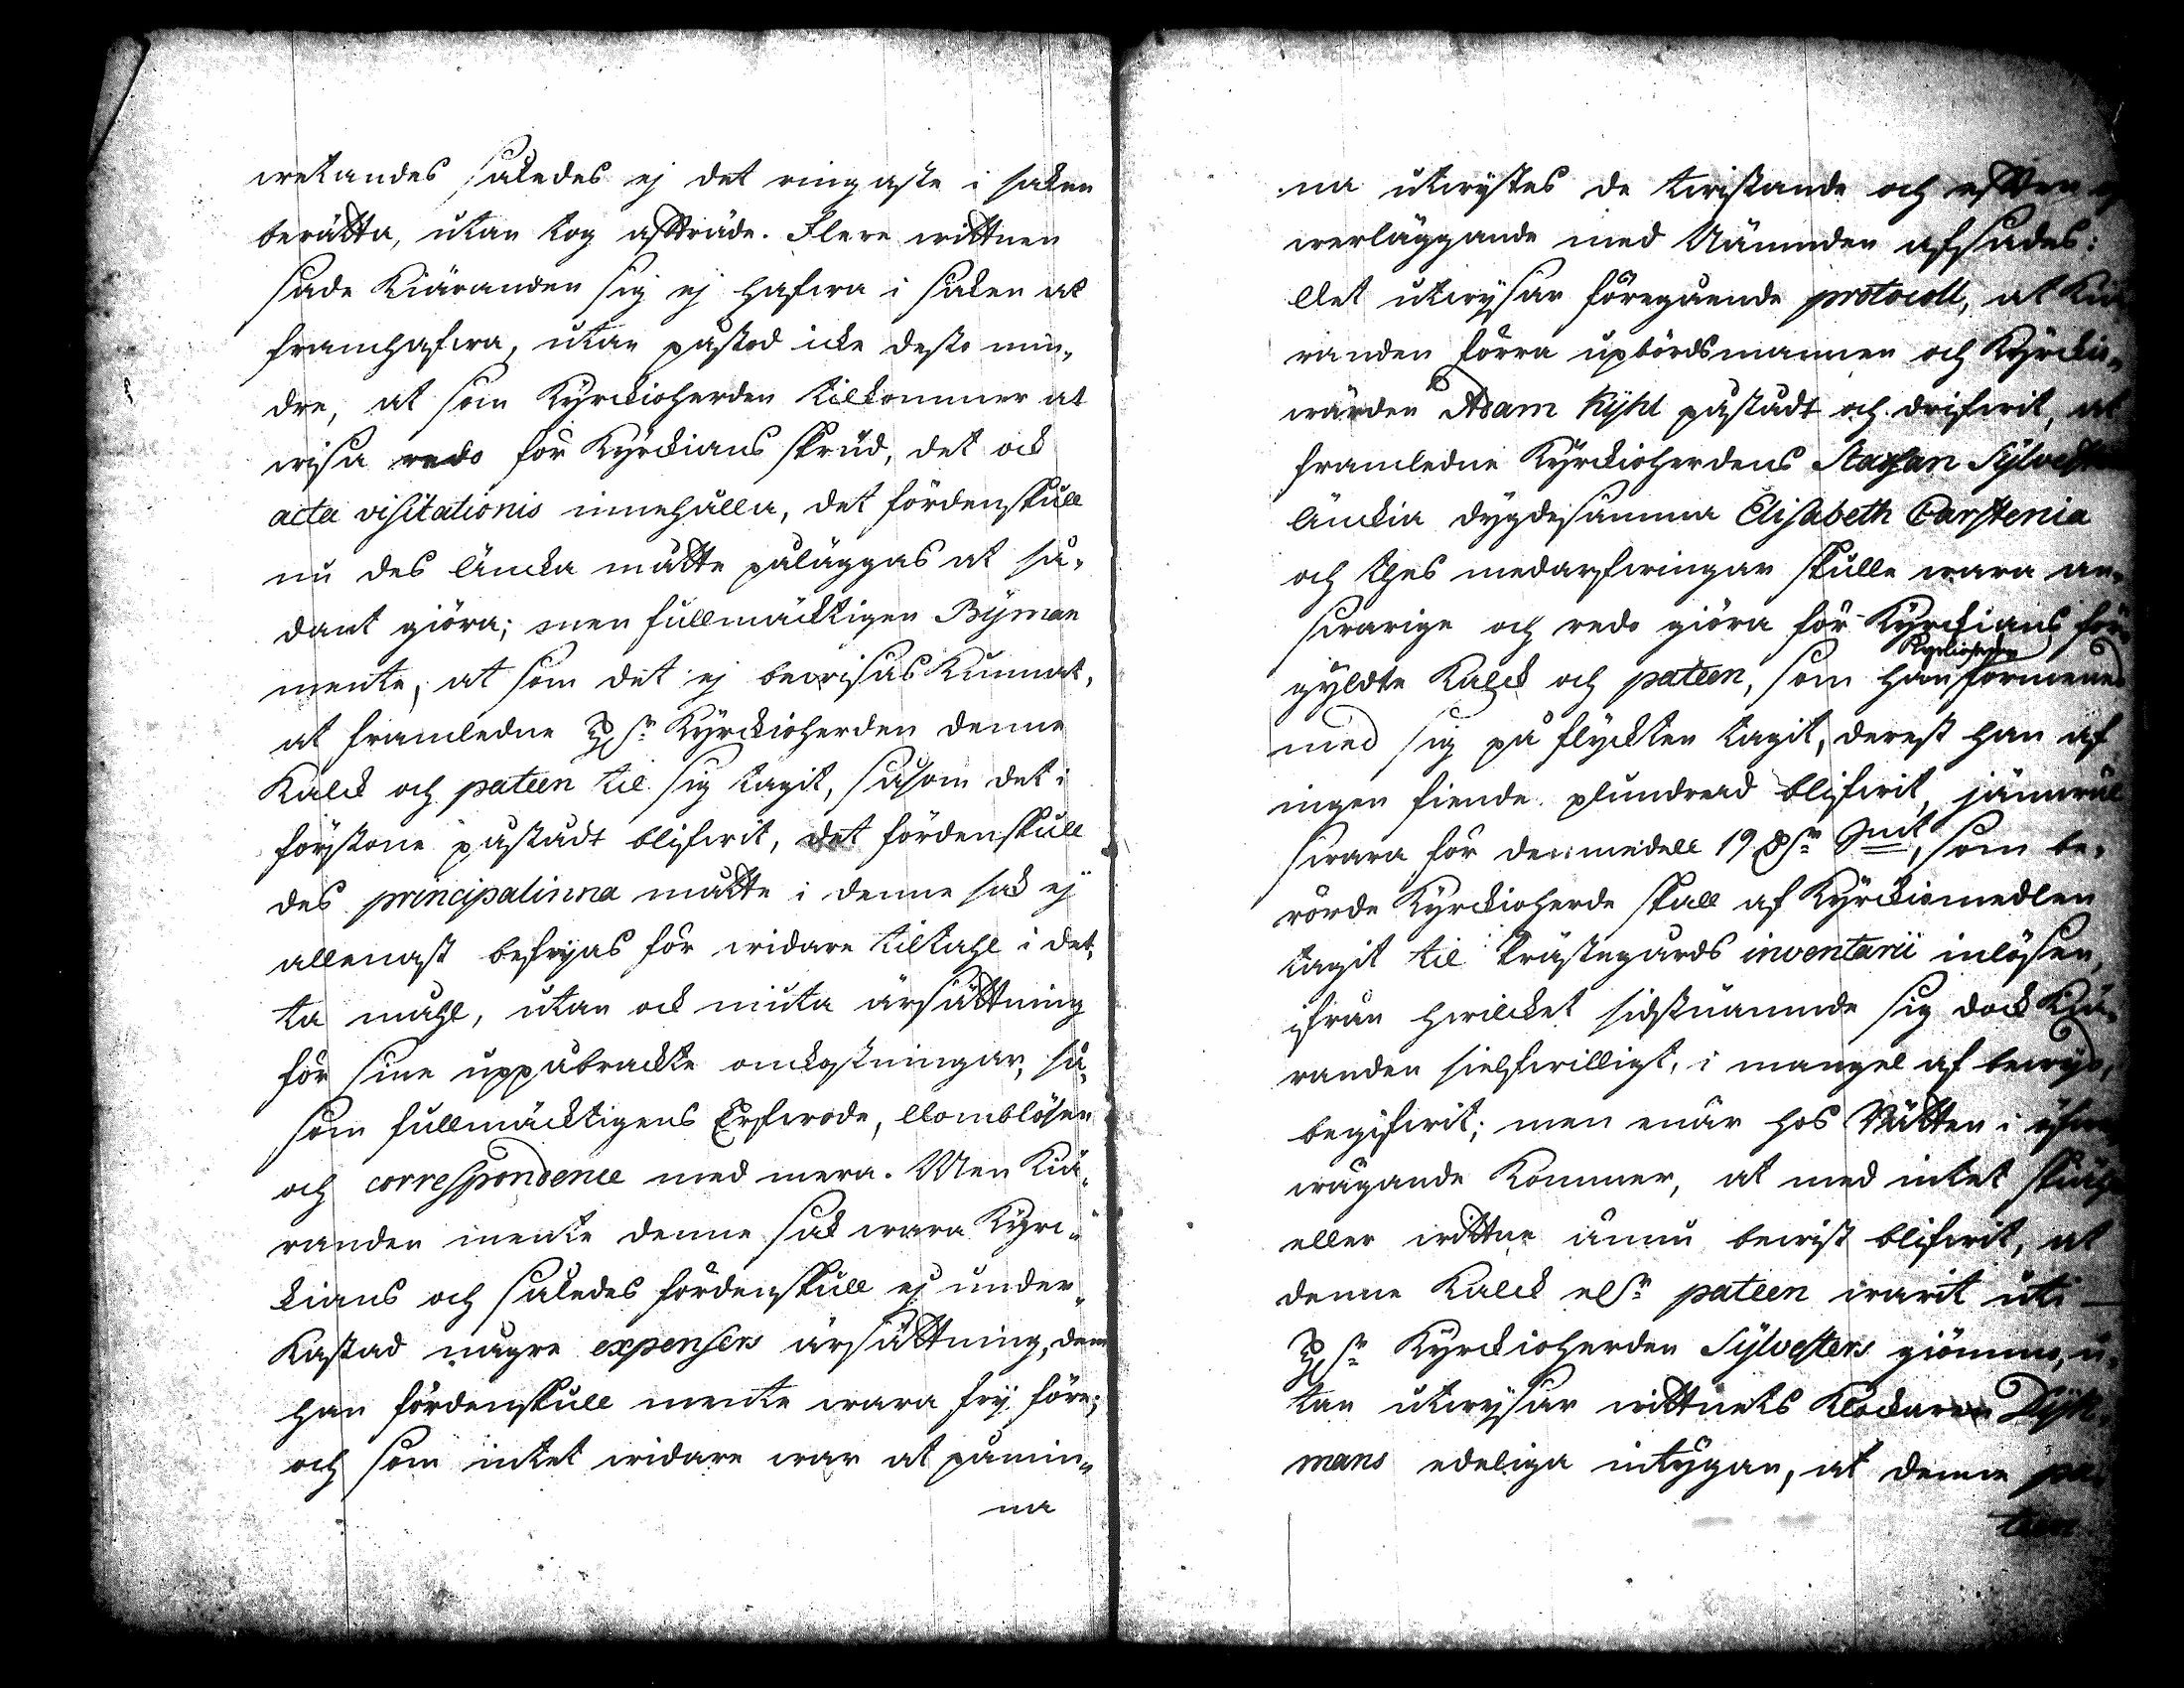 wetandes således ej det ringaste i saken
berätta, utan tog affträde. Flere wittnen
sade Kiäranden sig ej hafwa i saken at
framhafwa, utan påstod icke desto min-
dre, at som Kyrckioherden tilkommer at
wisa redo för Kyrckians skrud, det ock
acta visitationis innehålla, det fördenskull
nu des äncka måtte påläggas at så-
dant giöra; men fullmäcktigen Byman
mente, at som det ej bewisas kunnat,
at framledne H:r Kyrckioherden denne
Kalck och pateen til sig tagit, såsom det i
förstone påstådt blifwit, det fördenskull
des principalinna måtte i denne sak ej
allenast befryas för widare tiltahl i det-
ta mahl, utan ock niuta ärsättning
för sine uppåbrackte omkostningar, så-
som fullmäcktigens Erfwode, Domblösen
och correspondence med mera. Men Kiä-
randen mente denne sak wara Kyrc-
kians och således fördenskull ej under-
kastad någre expensers ärsättning, dem
han fördenskull mente wara fry före;
och som intet widare war at påmin-
na
na utwystes de twistande och effter
werläggande med Nämnden afsades:
Det utwysar föregående protocoll, at Kiä-
randen förra upbördsmannen och Kyrckio-
wärden Adam Kyhl påstådt och drifwit, at
framledne Kyrckioherdens Staffan Sylvesters
änckia dygdesamma Elisabeth Carstenia
och thes medarfwingar skulle wara an-
swarige och redo giöra för Kyrckians för-
gyldte Kalck och pateen, som Kyrckioherden han förmenes
med sig på flyckten tagit, derest han af
ingen fiende plundrad blifwit, jämwäl
swara för de medell 19 Smt, som be-
rörde Kyrckioherde skall af Kyrckiomedlen
tagit til Prästegårds inventarii inlösen,
ifrån hwilcket sidstnämnde sig dock Kiä-
randen sielfwilligt, i mangel af bewys,
begifwit; men enär hos Rätten i öfwer
wägande kommer, at med intet skiähl
eller wittne ännu bewist blifwit, at
denne Kalck els:r pateen warit uti
H:r Kyrckioherden Sylvesters giömmo, u-
tan utwysar wittnets Klockaren Dyk-
mans edeliga intygan, at denne pa-
teen